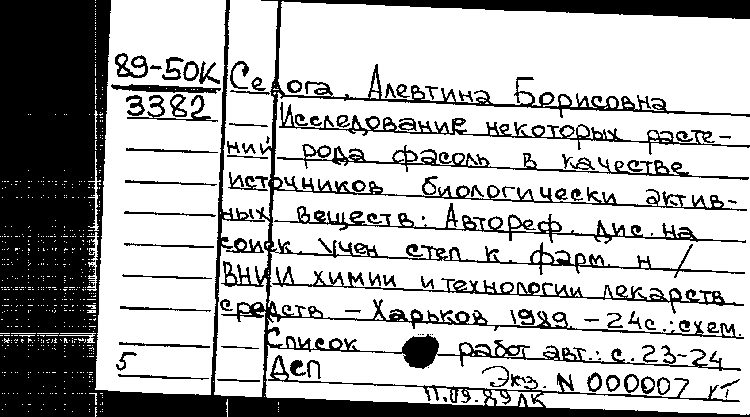 89-50К Седога, Алевтина Борисовна
3382 Исследование некоторых расте-
ний рода фасоль в качестве
источников биологически актив-
ных веществ: Автореф. дис. на
соиск. учен степ к. фарм. н /
ВНИИ химии и технологии лекарств
средств – Харьков, 1989. – 24с.: схем.
Список работ авт.: с. 23-24
5 ДСП Экз. N 000007 УТ
11.09.89 ЛК